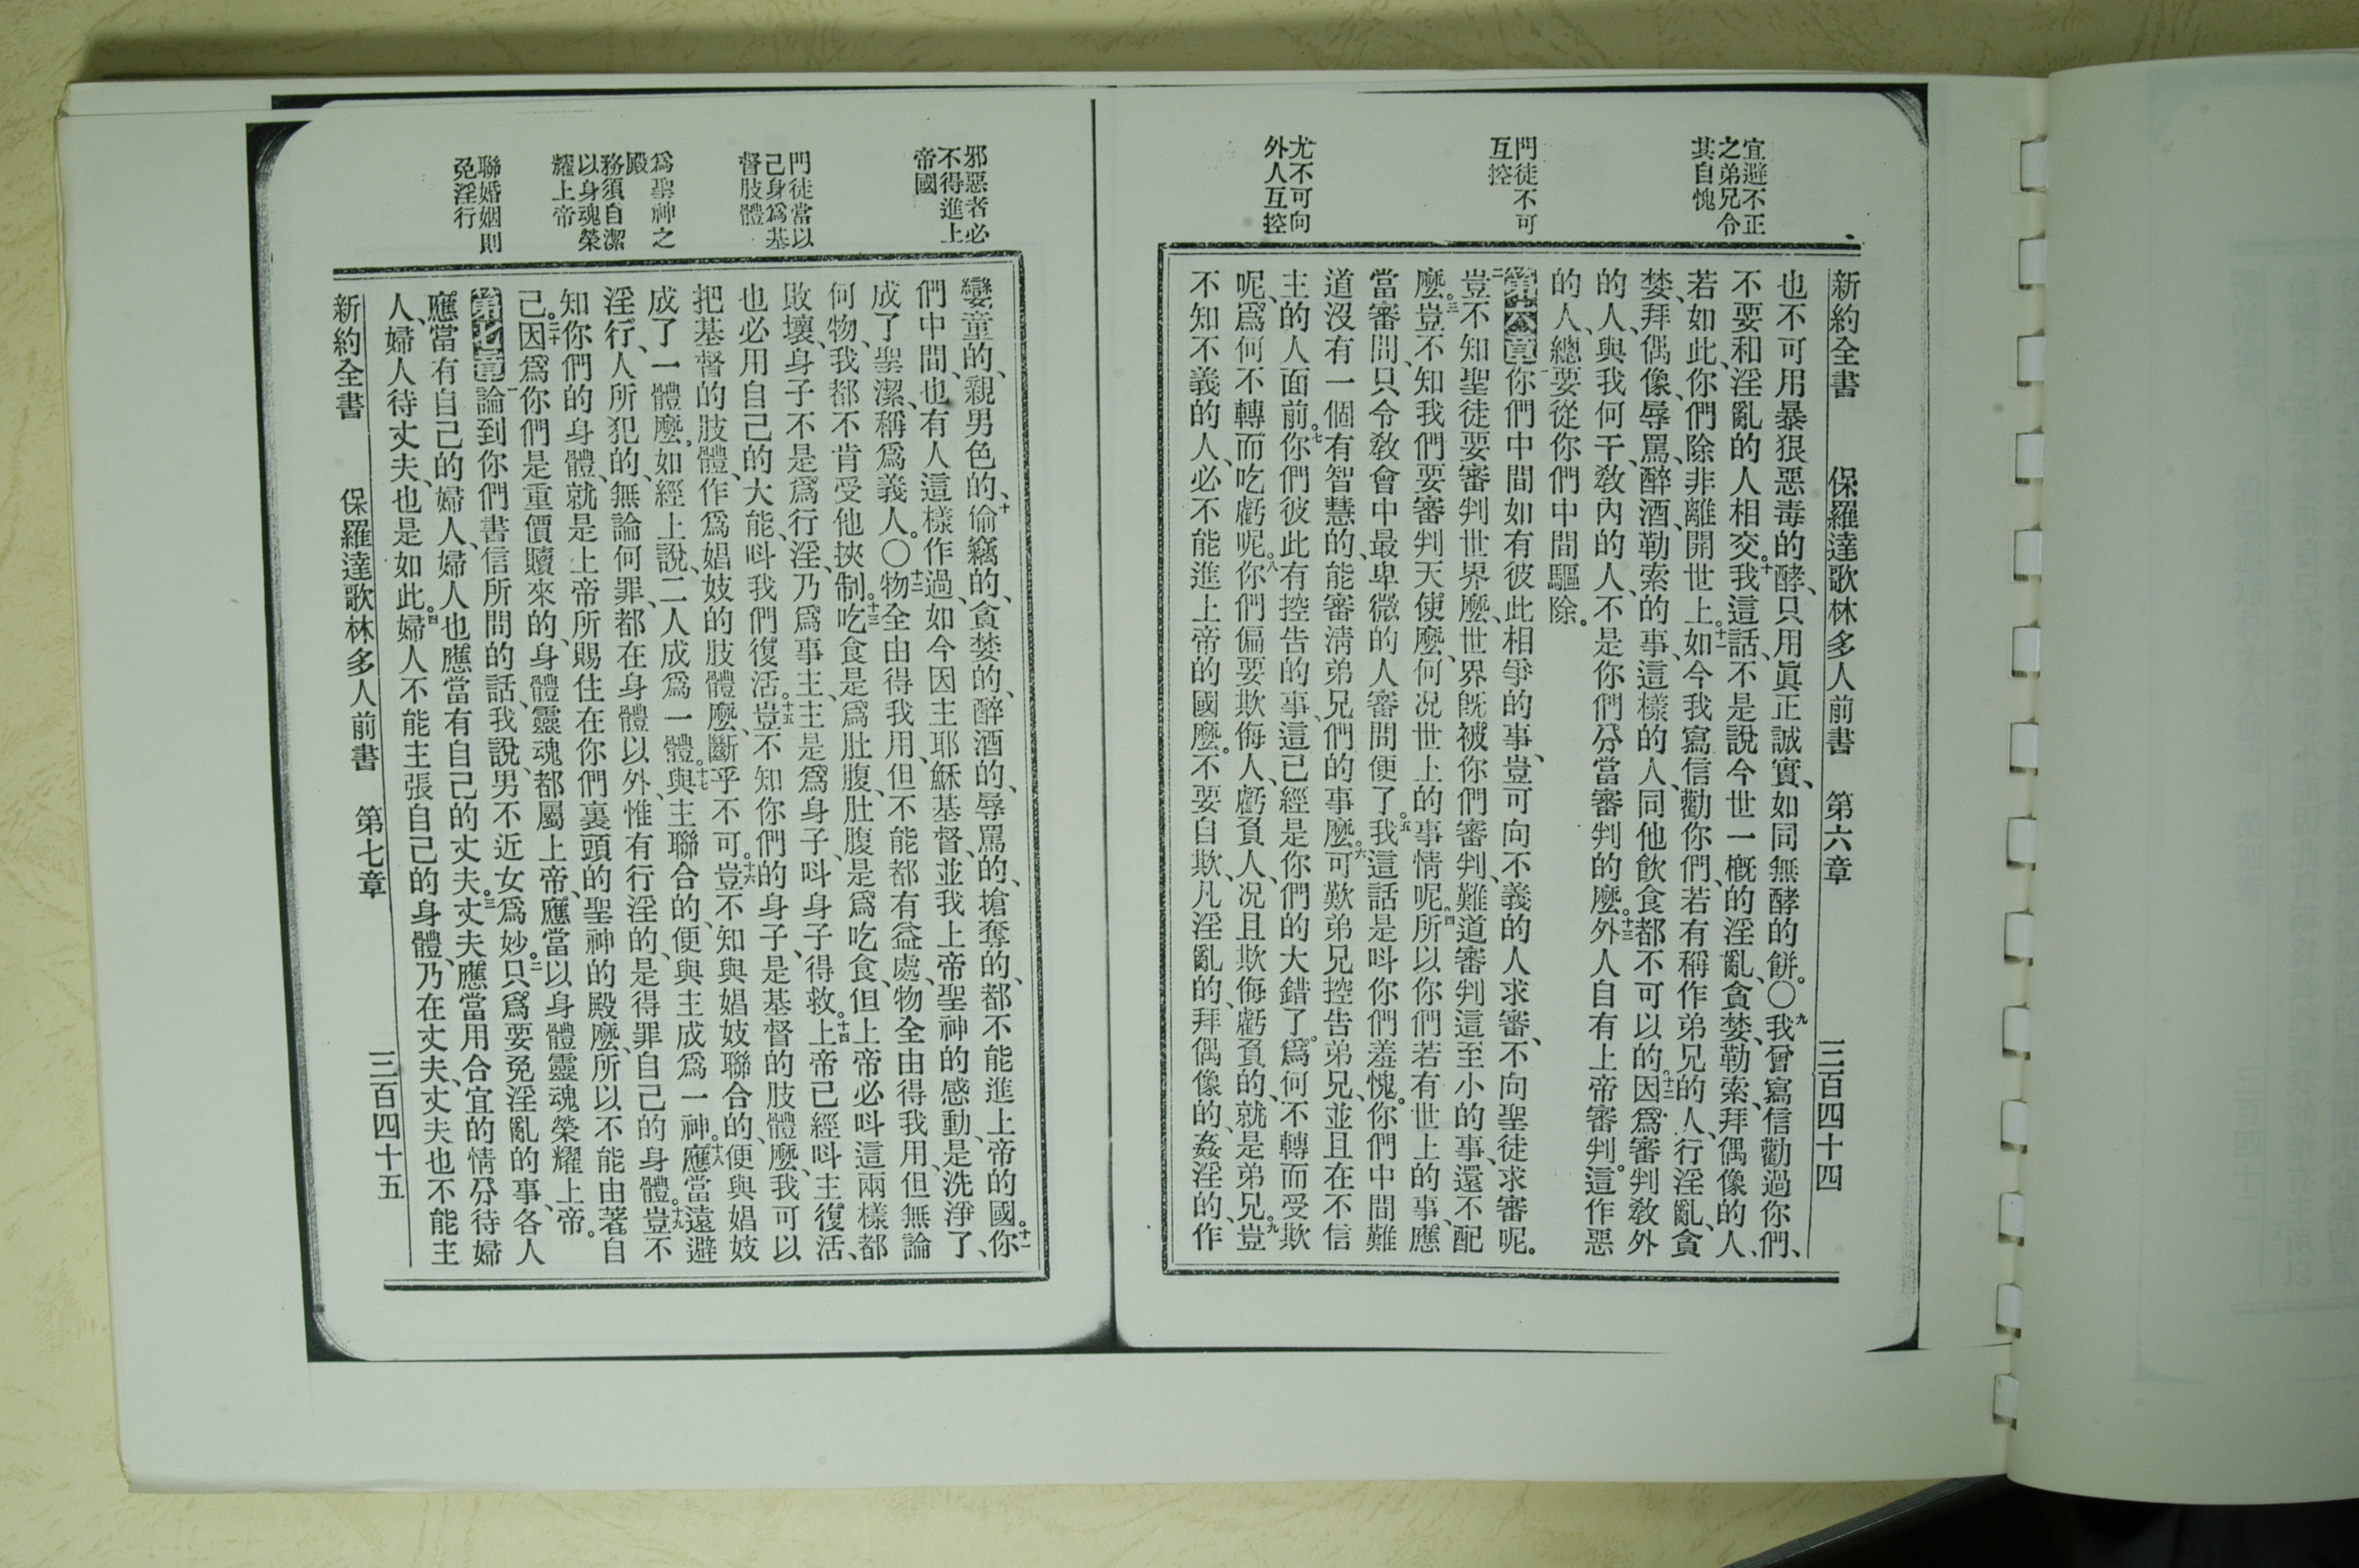 宜避不正
之弟兄令
其自愧
門徒不可
互控
尤不可向
外人互控
新約全書 保羅達歌林多人前書 第六章 三百四十四
也不可用暴狠惡毒的酵、只用眞正誠實、如同無酵的餅。〇九我曾寫信勸過你們、
不要和淫亂的人相交。十我這話、不是說今世一槪的淫亂、貪婪、勒索、拜偶像的人、
若如此、你們除非離開世上。十一如今我寫信勸你們、若有稱作弟兄的人、行淫亂、貪
婪、拜偶像、辱罵、醉酒、勒索的事、這樣的人、同他飮食都不可以的。十二因爲審判敎外
的人、與我何干、敎內的人、不是你們分當審判的麼。十三外人自有上帝審判。這作惡
的人、總要從你們中間驅除。
第六章一你們中間如有彼此相爭的事、豈可向不義的人求審、不向聖徒求審呢。
二豈不知聖徒要審判世界麼、世界旣被你們審判、難道審判這至小的事、還不配
麼。三豈不知我們要審判天使麼、何况世上的事情呢。四所以你們若有世上的事、應
當審問、只令敎會中最卑微的人審問便了。五我這話是呌你們羞愧。你們中間難
道沒有一個有智慧的、能審淸弟兄們的事麼。六可歎弟兄控告弟兄、並且在不信
主的人面前。七你們彼此有控告的事、這已經是你們的大錯了。爲何不轉而受欺
呢、爲何不轉而吃虧呢。八你們偏要欺侮人、虧負人、况且欺侮虧負的、就是弟兄。九豈
不知不義的人、必不能進上帝的國麼。不要自欺、凡淫亂的、拜偶像的、姦淫的、作
邪惡者必
不得進上
帝國
門徒當以
己身爲基
督肢體
爲聖神之
殿
務須自潔
以身魂榮
耀上帝
聯婚姻則
免淫行
孌童的、親男色的、十偷竊的、貪婪的、醉酒的、辱罵的、搶奪的、都不能進上帝的國。十一你
們中間、也有人這樣作過、如今因主耶穌基督、並我上帝聖神的感動、是洗淨了、
成了聖潔、稱爲義人。〇十二物全由得我用、但不能都有益處、物全由得我用、但無論
何物、我都不肯受他挾制。十三吃食是爲肚腹、肚腹是爲吃食、但上帝必呌這兩樣都
敗壞、身子不是爲行淫、乃爲事主、主是爲身子、呌身子得救。十四上帝已經呌主復活、
也必用自己的大能、呌我們復活。十五豈不知你們的身子、是基督的肢體麼、我可以
把基督的肢體、作爲娼妓的肢體麼、斷乎不可。十六豈不知與娼妓聯合的、便與娼妓
成了一體麼。如經上說、二人成爲一體。十七與主聯合的、便與主成爲一神。十八應當遠避
淫行、人所犯的、無論何罪、都在身體以外、惟有行淫的、是得罪自己的身體。十九豈不
知你們的身體、就是上帝所賜住在你們裏頭的聖神的殿麼、所以不能由著自
己。二十因爲你們是重價贖來的、身體靈魂都屬上帝、應當以身體靈魂榮耀上帝。
第七章一論到你們書信所問的話、我說、男不近女爲妙。二只爲要免淫亂的事、各人
應當有自己的婦人、婦人也應當有自己的丈夫。三丈夫應當用合宜的情分待婦
人、婦人待丈夫、也是如此。四婦人不能主張自己的身體、乃在丈夫、丈夫也不能主
新約全書 保羅達歌林多人前書 第七章 三百四十五